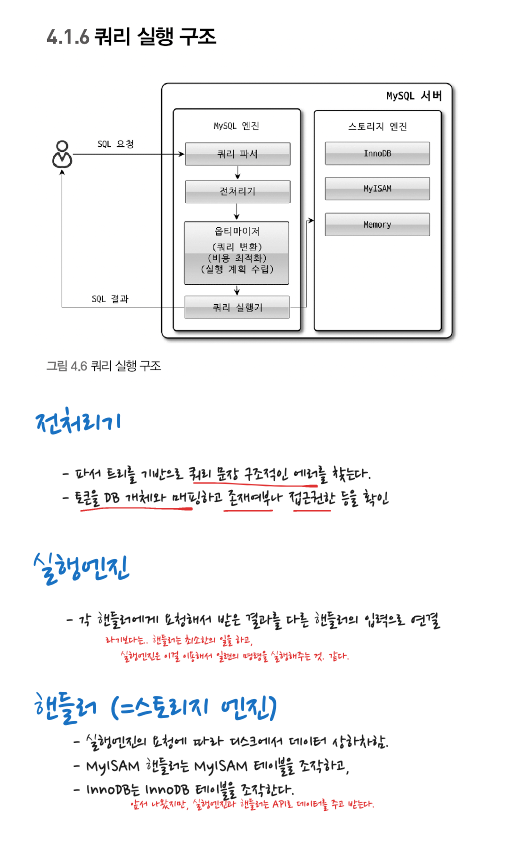 4.1.6 쿼리 실행 구조
MySQL 서버
MySQL 엔진
스토리지 엔진
SQL 요청
쿼리 파서
InnoDB
전처리기
MyISAM
옵티마이저
Memory
(쿼리 변환)
(비용 최적화)
(실행 계획 수립)
SQL 결과
쿼리 실행기
그림 4.6 쿼리 실행 구조
전처리기
- 파서 트리를 기반으로 쿼리 문장 구조적인 에러를 찾는다.
- 토큰을 DB 개체와 매핑하고 존재여부나 접근권한 등을 확인
실행엔진
- 각 핸들러에게 요청해서 받은 결과를 다른 핸들러의 입력으로 연결
라기보다는.. 핸들러는 최소한의 일을 하고,
실행엔진은 이걸 이용해서 일련의 명령을 실행해주는 것. 같다.
핸들러 (=스토리지 엔진)
- 실행엔진의 요청에 따라 디스크에서 데이터 상하차함.
- MyISAM 핸들러는 MyISAM 테이블을 조작하고,
- InnoDB는 InnoDB 테이블을 조작한다.
앞서 나왔지만, 실행엔진과 핸들러는 API로 데이터를 주고 받는다.